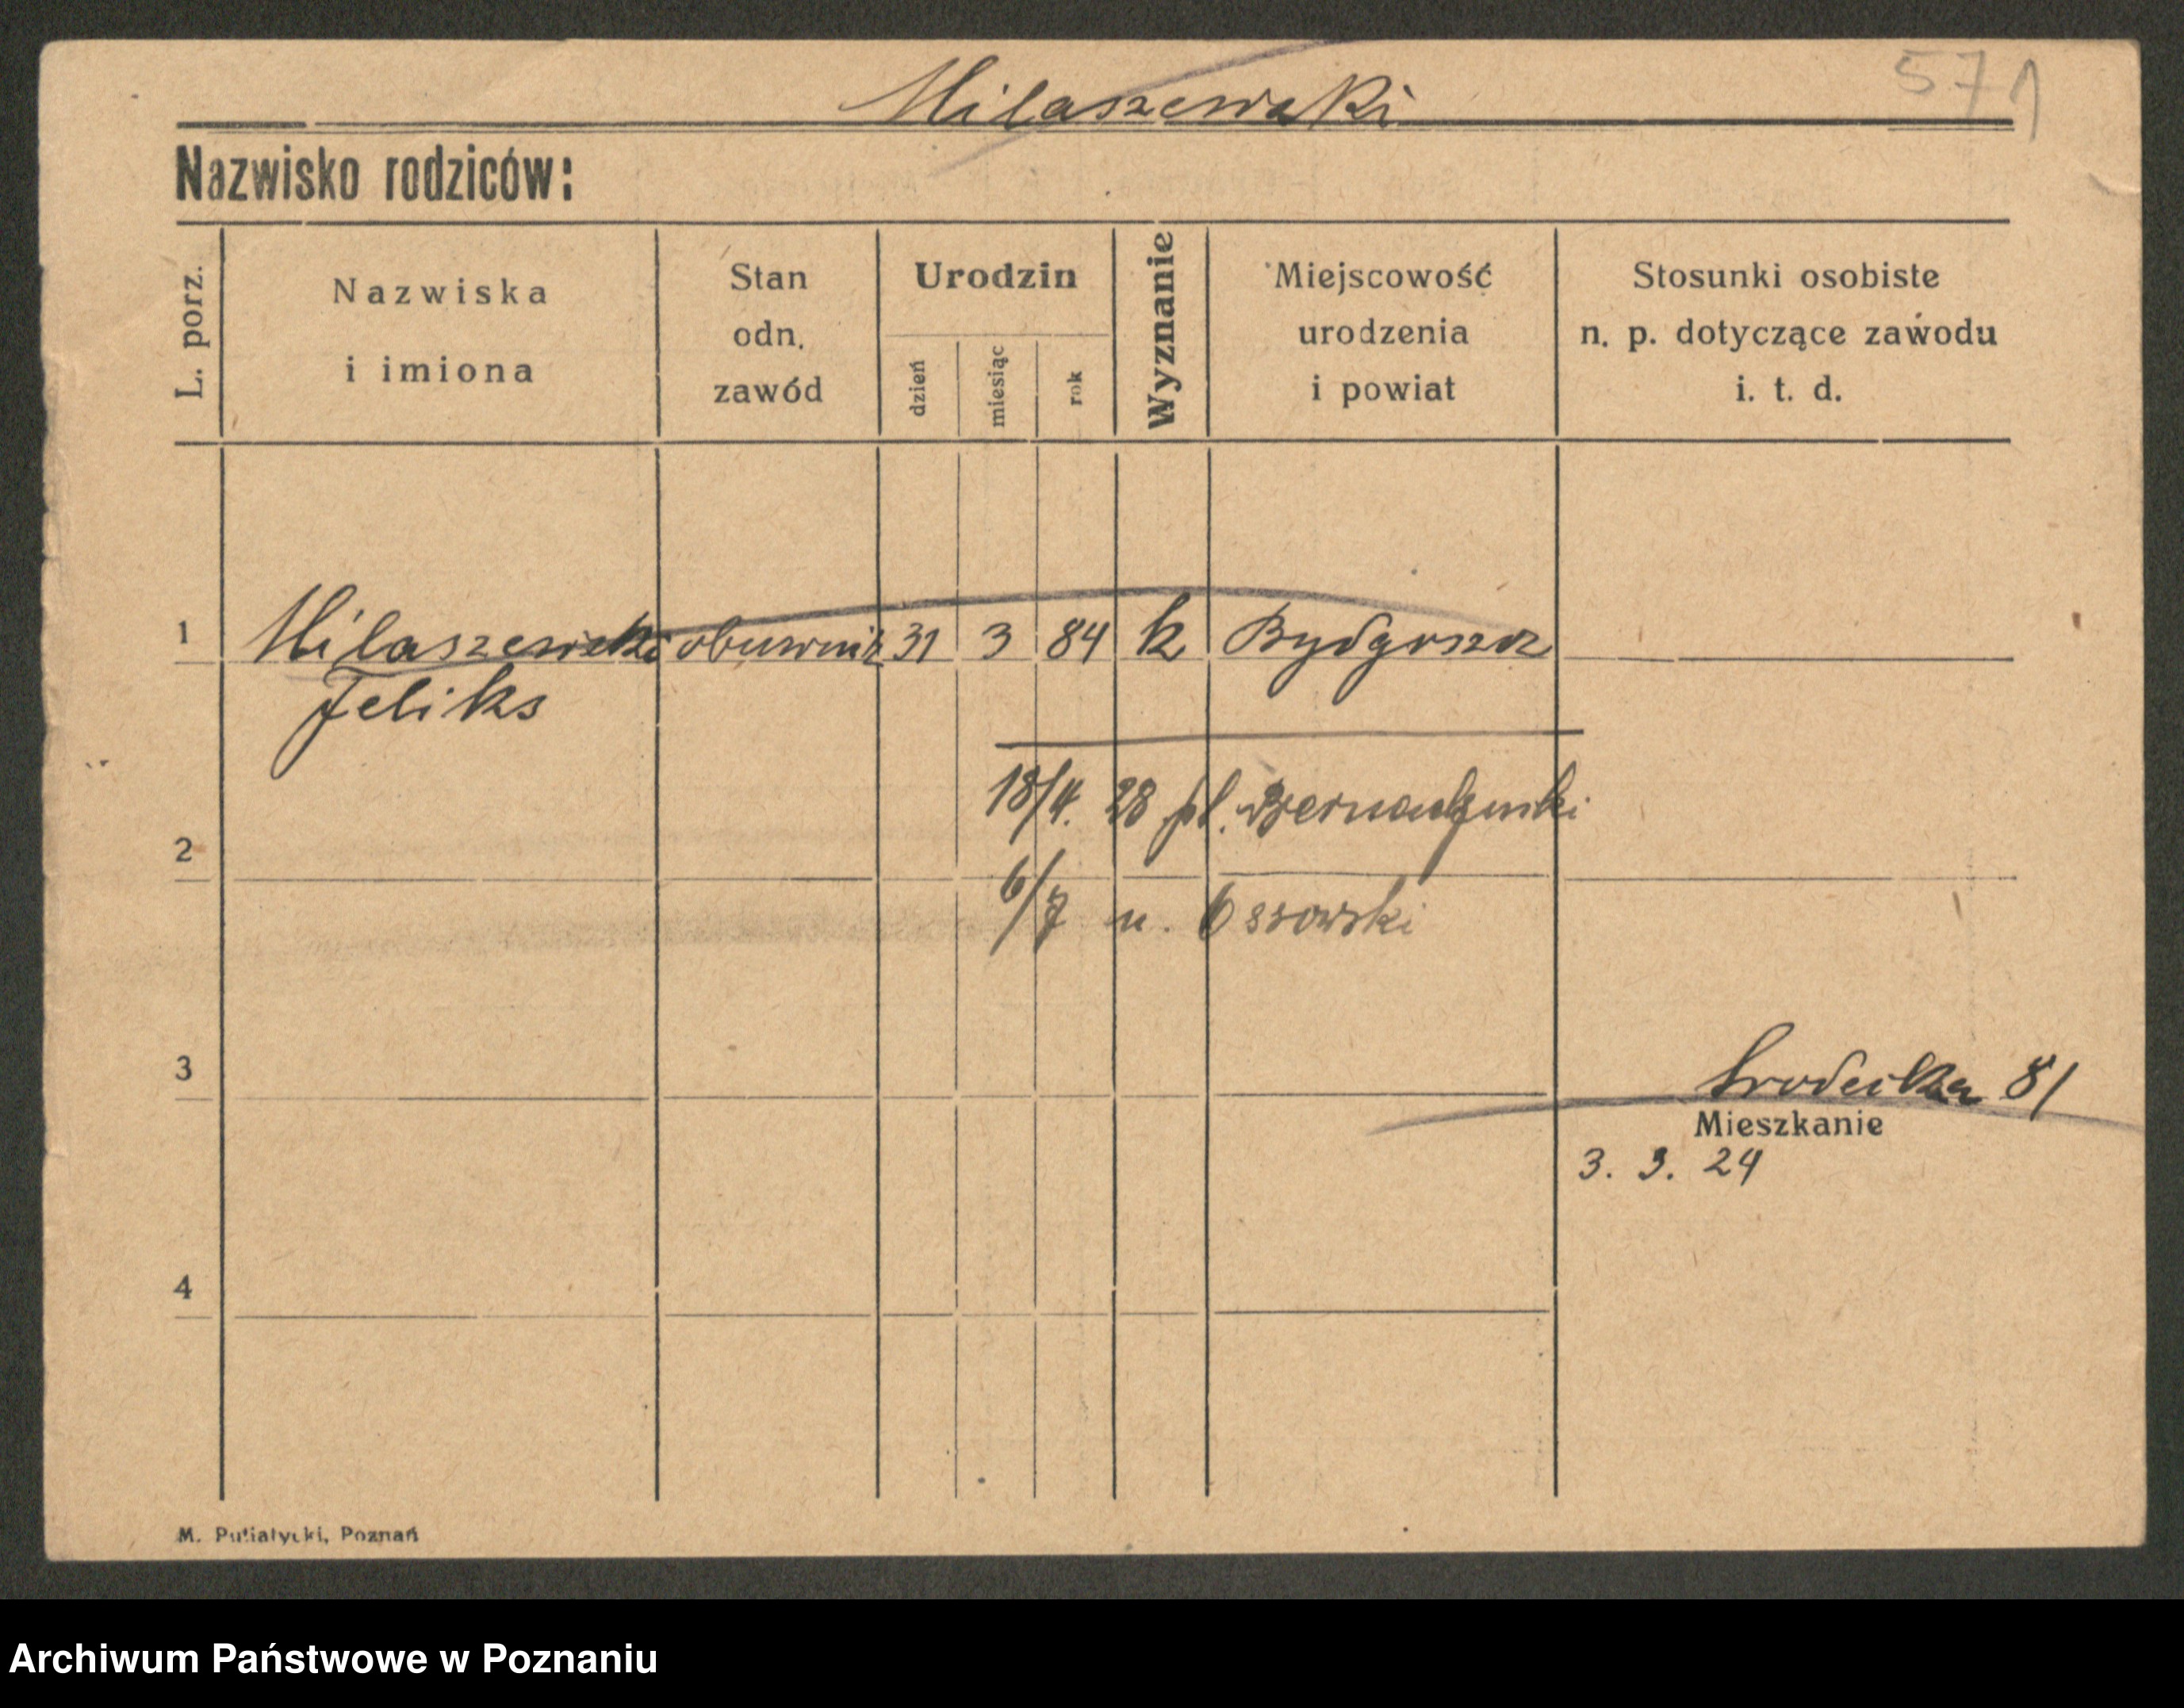 571
Milaszewski
Nazwisko rodziców:
L. porz.
Nazwiska
i imiona
Stan
odn.
zawód
Urodzin
dzień
miesiąc
rok
Wyznanie
Miejscowość
urodzenia
i powiat
Stosunki osobiste
n. p. dotyczące zawodu
i. t. d.
1 Milaszewski obuwnik 31 3 84 k Bydgoszcz
Feliks
18/4. 28 pl. Bernardynski
2
6/7 u. Ossowski
3
Srodecka 81
Mieszkanie
3. 3. 24
4
M. Putiatycki, Poznań
Archiwum Państwowe w Poznaniu